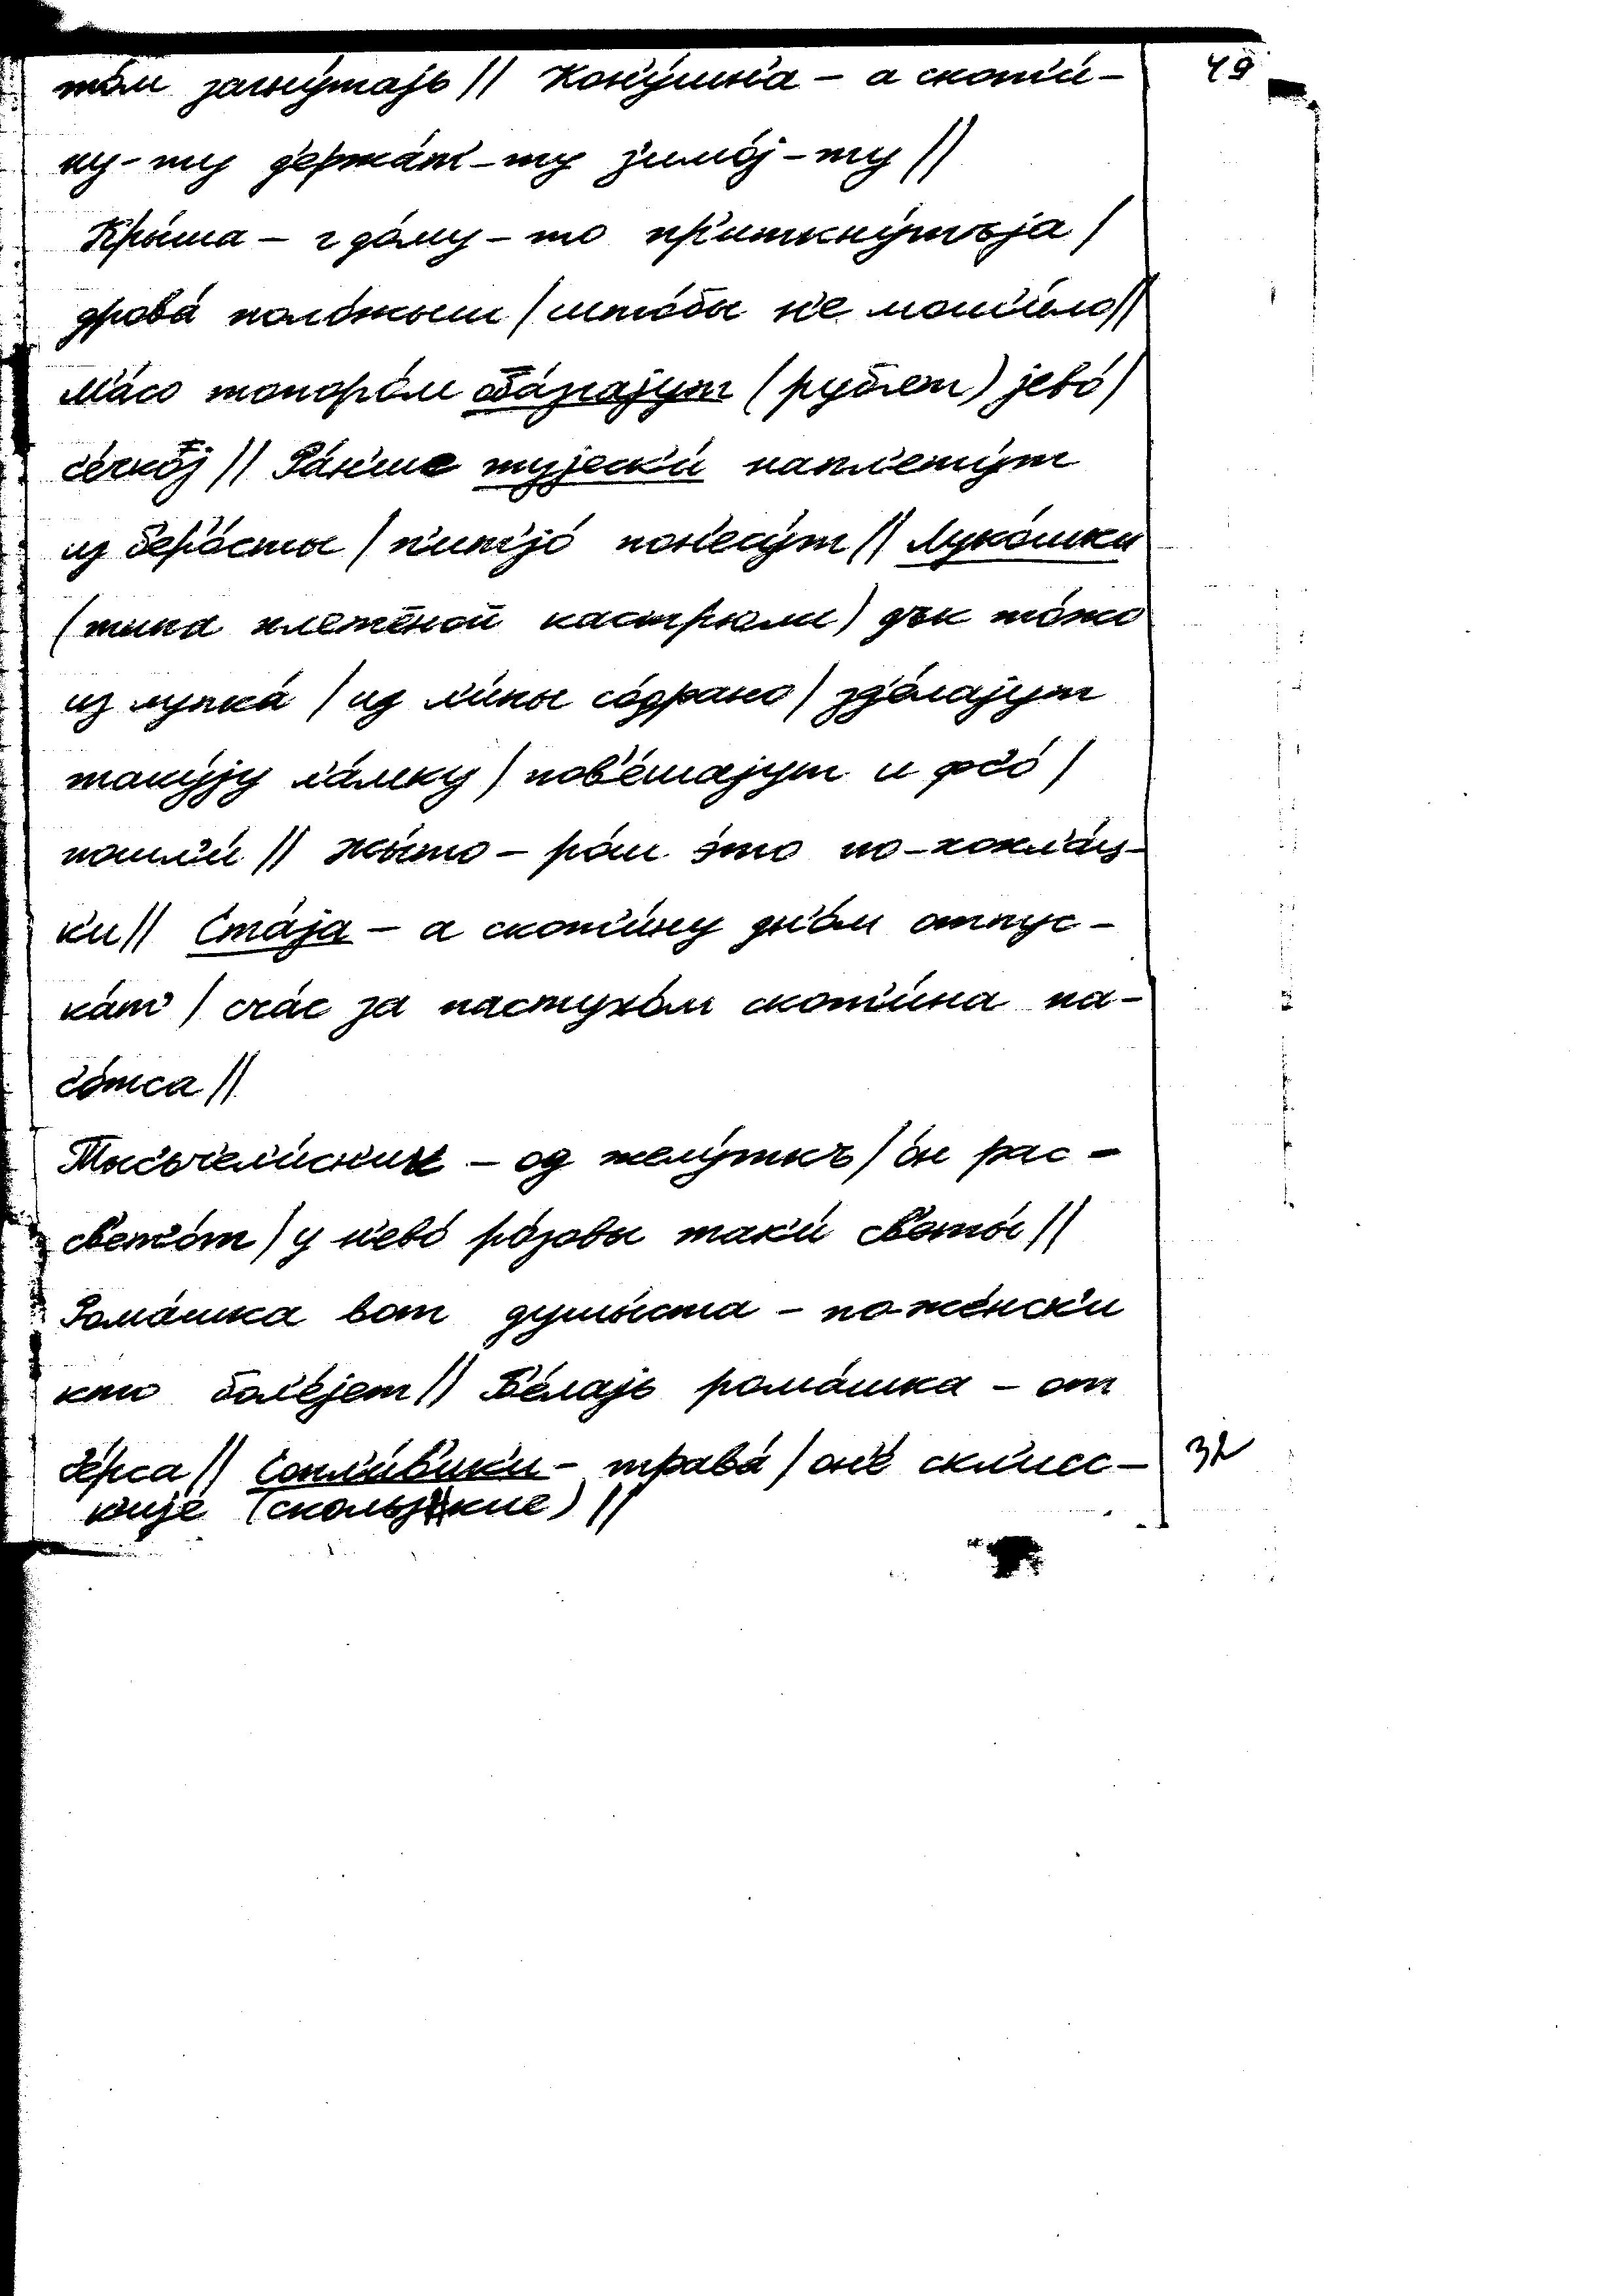 то́м загну́тајь // Кон'у́шн'а – а скот'и́- 49
ну-ту д'ержа́т-ту з'имо́ј-ту //
Кры́ша – г до́му-то пр'иткну́тъја /
дрова́ поло́жыш / што́бы н'е моч'и́ло //
М'а́со топоро́м (рубят) јево́ /
с'е́чко̄ј // Ра́н'ше тујеск'и́ напл'ету́т
из б'ер'о́сты / п'ит'јо́ пон'есу́т // Луко́шки
(типа плетёной кастрюли) дък то́жо
из лупка́ / ид л'и́пы со́драно / зд'е́лајут
таку́ју л'а́мку / пов'е́шајут и фс'о́ /
пошл'и́ // Жы́то – ро́ш э́то по-хохл'а́ц-
ки // Ста́ја – а скот'и́ну дн'о́м отпус-
ка́т / счас за пастухо́м скот'и́на па-
с'о́тса //
Тыс'ьчел'и́сн'ик – од желу́ткъ / о́н рас-
св'ет'о́т / у н'ево́ ро́зовы так'и́ св'еты́ //
Рома́шка вот душы́ста – по-же́нск'и
кто бол'е́јет // Б'е́лајь рома́шка – от
с'е́рса // Сопл'и́в'ики – трава́ / он'е́ скл'исс- 32
к'ије (скользкие) //